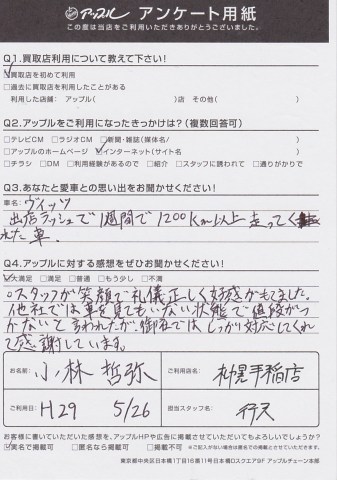 アップル アンケート用紙
この度は当店をご利用いただきありがとうございました。
Q1.買取店利用について教えて下さい!
☑買取店を初めて利用
□過去に買取店を利用したことがある
利用した店舗: アップル( )店 その他( )
Q2.アップルをご利用になったきっかけは?(複数回答可)
□テレビCM □ラジオCM □新聞・雑誌(媒体名/ )
□アップルのホームページ ☑インターネット(サイト名 )
□チラシ □DM □利用経験があるので □紹介 □スタッフに誘われて □通りがかりで
Q3.あなたと愛車との思い出をお聞かせください!
車名: ヴィッツ
出店ラッシュで1週間で1200km以上走ってく
れた車.
Q4.アップルに対する感想をぜひお聞かせください!
☑大満足 □満足 □普通 □もう少し □不満
○スタッフが笑顔で礼儀正しく好感がもてました。
他社では車を見てもいない状態で値段がつ
かないと言われたが、御社ではしっかり対応してくれ
て感謝しています。
お名前: 小林 哲弥
ご利用店名: 札幌手稲店
ご利用日: H29 5/26
担当スタッフ名:
お客様に書いていただいた感想を、アップルHPや広告に掲載させていただいてもよろしいでしょうか?
☑実名で掲載可 □匿名なら掲載可 □掲載不可 ※ご記入がない場合は匿名とさせていただきます
東京都中央区日本橋1丁目16番11号日本橋Dスクエア9F アップルチェーン本部